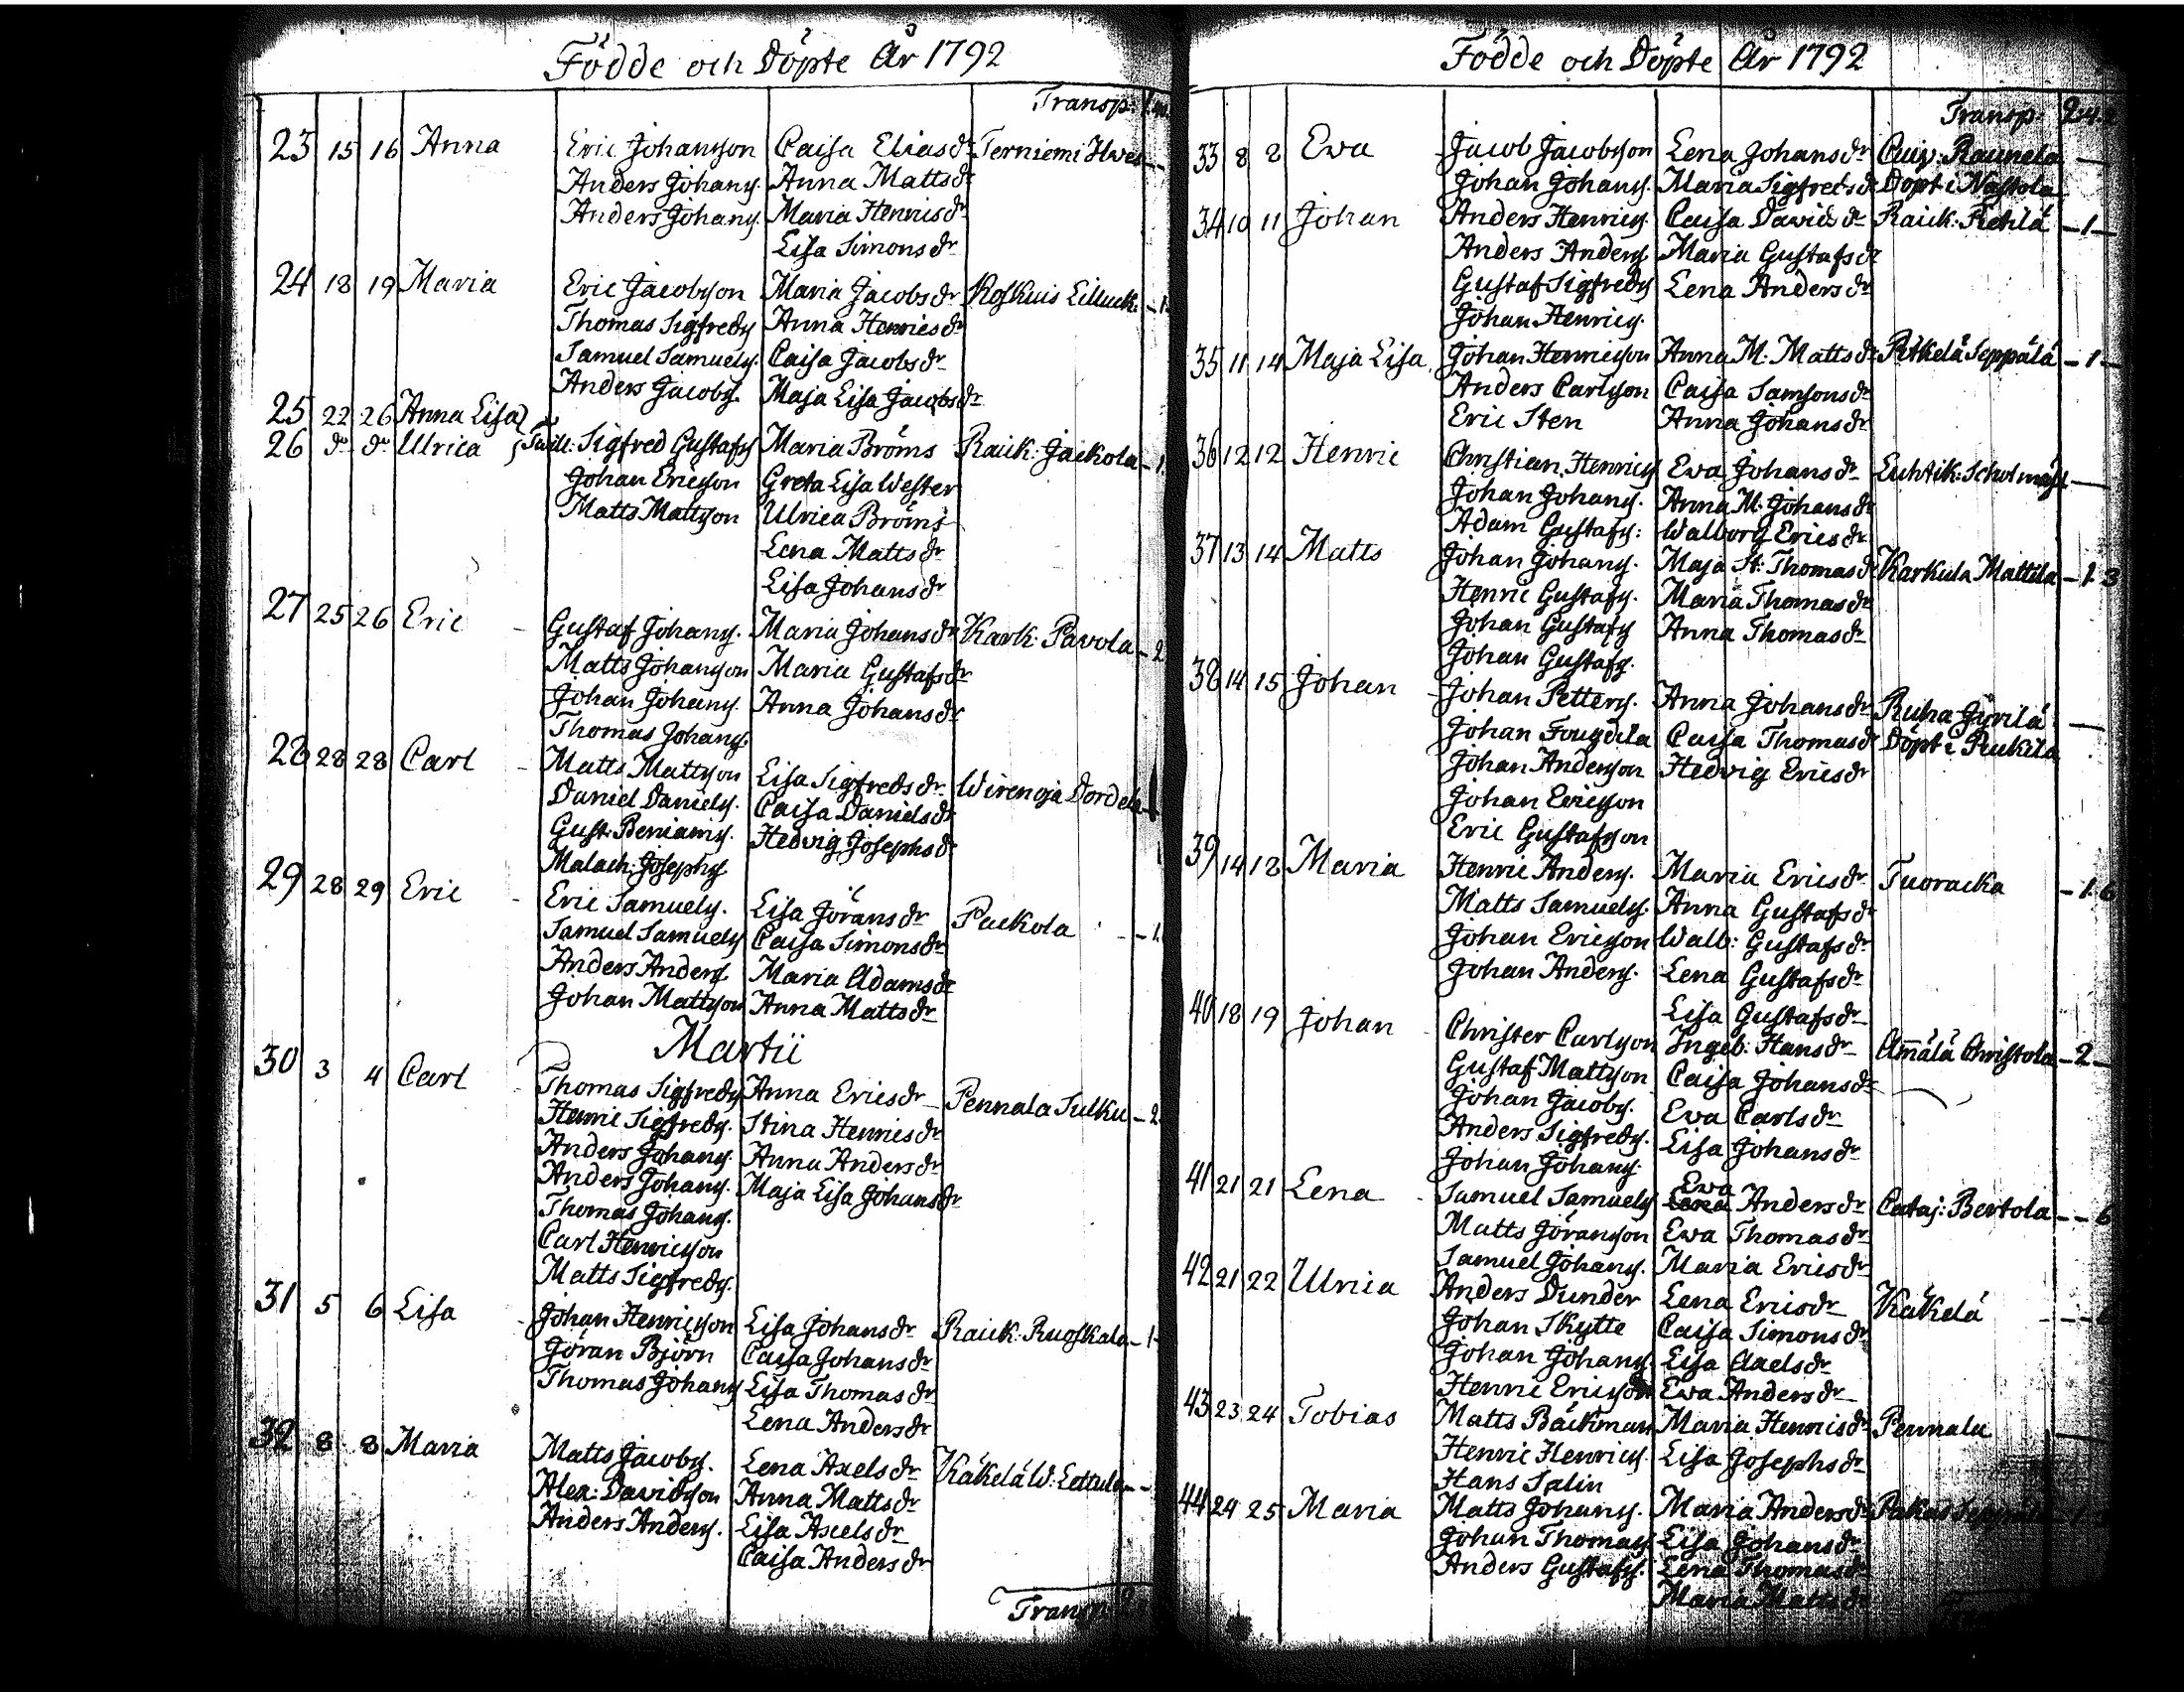 Födde och Döpte År 1792
Transp:
23 15 16 Anna Eric Johansson Caisa Eliasdr Terniemi
Anders Johanss. Anna Mattsdr
Anders Johanss. Maria Henricsdr
Lisa Simonsdr
24 18 19 Maria Eric Jacobsson Maria Jacobsdr Koskuis Eiluck: - 1
Thomas Sigfredss Anna Henricsdr
Samuel Samuelss. Caisa Jacobsdr
Anders Jacobss. Maja Lisa Jacobsdr
25 22 26 Anna Lisa
26 do do Ulrica Twill: Sigfred Gustafss Maria Bröms Raick: Jackola - 1
Johan Ericsson Greta Lisa Wester
Matts Mattsson Ulrica Bröms
Lena Mattsdr
Lisa Johansdr
27 25 26 Eric Gustaf Johanss. Maria Johansdr Kark: Pavola - 2
Matts Johansson Maria Gustafsdr
Johan Johanss. Anna Johansdr
Thomas Johanss.
28 28 28 Carl Matts Mattsson Lisa Sigfredsdr Wirenoja
Daniel Danielss. Caisa Danielsdr
Gust: Beniamiss. Hedvig Josephsdr
Malach: Josephss
29 28 29 Eric Eric Samuelss. Lisa Göransdr Packola - 1
Samuel Samuelss Caisa Simonsdr
Anders Anderss. Maria Adamsdr
Johan Mattsson Anna Mattsdr
Martii
30 3 4 Carl Thomas Sigfredss Anna Ericsdr Pennala Sulku - 2
Henric Sigfredss. Stina Henricsdr
Anders Johanss. Anna Andersdr
Anders Johanss. Maja Lisa Johansdr
Thomas Johanss.
Carl Henricsson
Matts Sigfredss.
31 5 6 Lisa Johan Henricsson Lisa Johansdr Raick: Ruoskala - 1
Göran Björn Caisa Johansdr
Thomas Johanss Lisa Thomasdr
Lena Andersdr
32 8 8 Maria Matts Jacobss. Lena Axelsdr Käkelä W: Lettula
Alex: Davidsson Anna Mattsdr
Anders Anderss. Lisa Axelsdr
Caisa Andersdr
Transp:
Födde och Döpte År 1792
Transp:
33 8 8 Ewa Jacob Jacobsson Lena Johansdr Cuiv: Raunela
Johan Johanss. Maria Sigfredsdr Döpt i Nastola
34 10 11 Johan Anders Henricss. Caisa Davidsdr Raick: - 1 -
Anders Anderss. Maria Gustafsdr
Gustaf Sigfredss Lena Andersdr
Johan Henricss.
35 11 14 Maja Lisa Johan Henricsson Anna M. Mattsdr Pitkelä Seppälä - 1 -
Anders Carlsson Caisa Samsonsdr
Eric Sten Anna Johansdr
36 12 12 Henric Christian Henricss Ewa Johansdr Luhtik:
Johan Johanss. Anna M. Johansdr
Adam Gustafss: Walborg Ericsdr
37 13 14 Matts Johan Johanss. Maja St: Thomasdr Karkula Mattila - 1. 3
Henric Gustafss. Maria Thomasdr
Johan Gustafss Anna Thomasdr
Johan Gustafss.
38 14 15 Johan Johan Petterss. Anna Johansdr Ruha Jyrilä
Johan Fougdila Caisa Thomasdr Döpt i Pukila
Johan Andersson Hedvig Ericsdr
Johan Ericsson
Eric Gustafsson
39 14 18 Maria Henric Anderss. Maria Ericsdr Tuoracka - 1. 6
Matts Samuelss. Anna Gustafsdr
Johan Ericsson Walb: Gustafsdr
Johan Anderss. Lena Gustafsdr
Lisa Gustafsdr
40 18 19 Johan Christer Carlsson Ingeb: Hansdr Christola - 2 -
Gustaf Mattsson Caisa Johansdr
Johan Jacobss. Ewa Carlsdr
Anders Sigfredss. Lisa Johansdr
Johan Johanss.
41 21 21 Lena Samuel Samuelss Ewa Andersdr Cataj: Bertola - - 6
Matts Göransson Ewa Thomasdr
Samuel Johanss. Maria Ericsdr
42 21 22 Ulrica Anders Dunder Lena Ericsdr Käkelä
Johan Skytte Caisa Simonsdr
Johan Johanss. Lisa Axelsdr
Henric Ericsson Ewa Andersdr
43 23 24 Tobias Matts Bäckman Maria Henricsdr Pennala
Henric Henricss. Lisa Josephsdr
Hans Salin
44 24 25 Maria Matts Johanss. Maria Andersdr
Johan Thomass Lisa Johansdr
Anders Gustafss. Lena Thomasdr
Maria Mattsdr